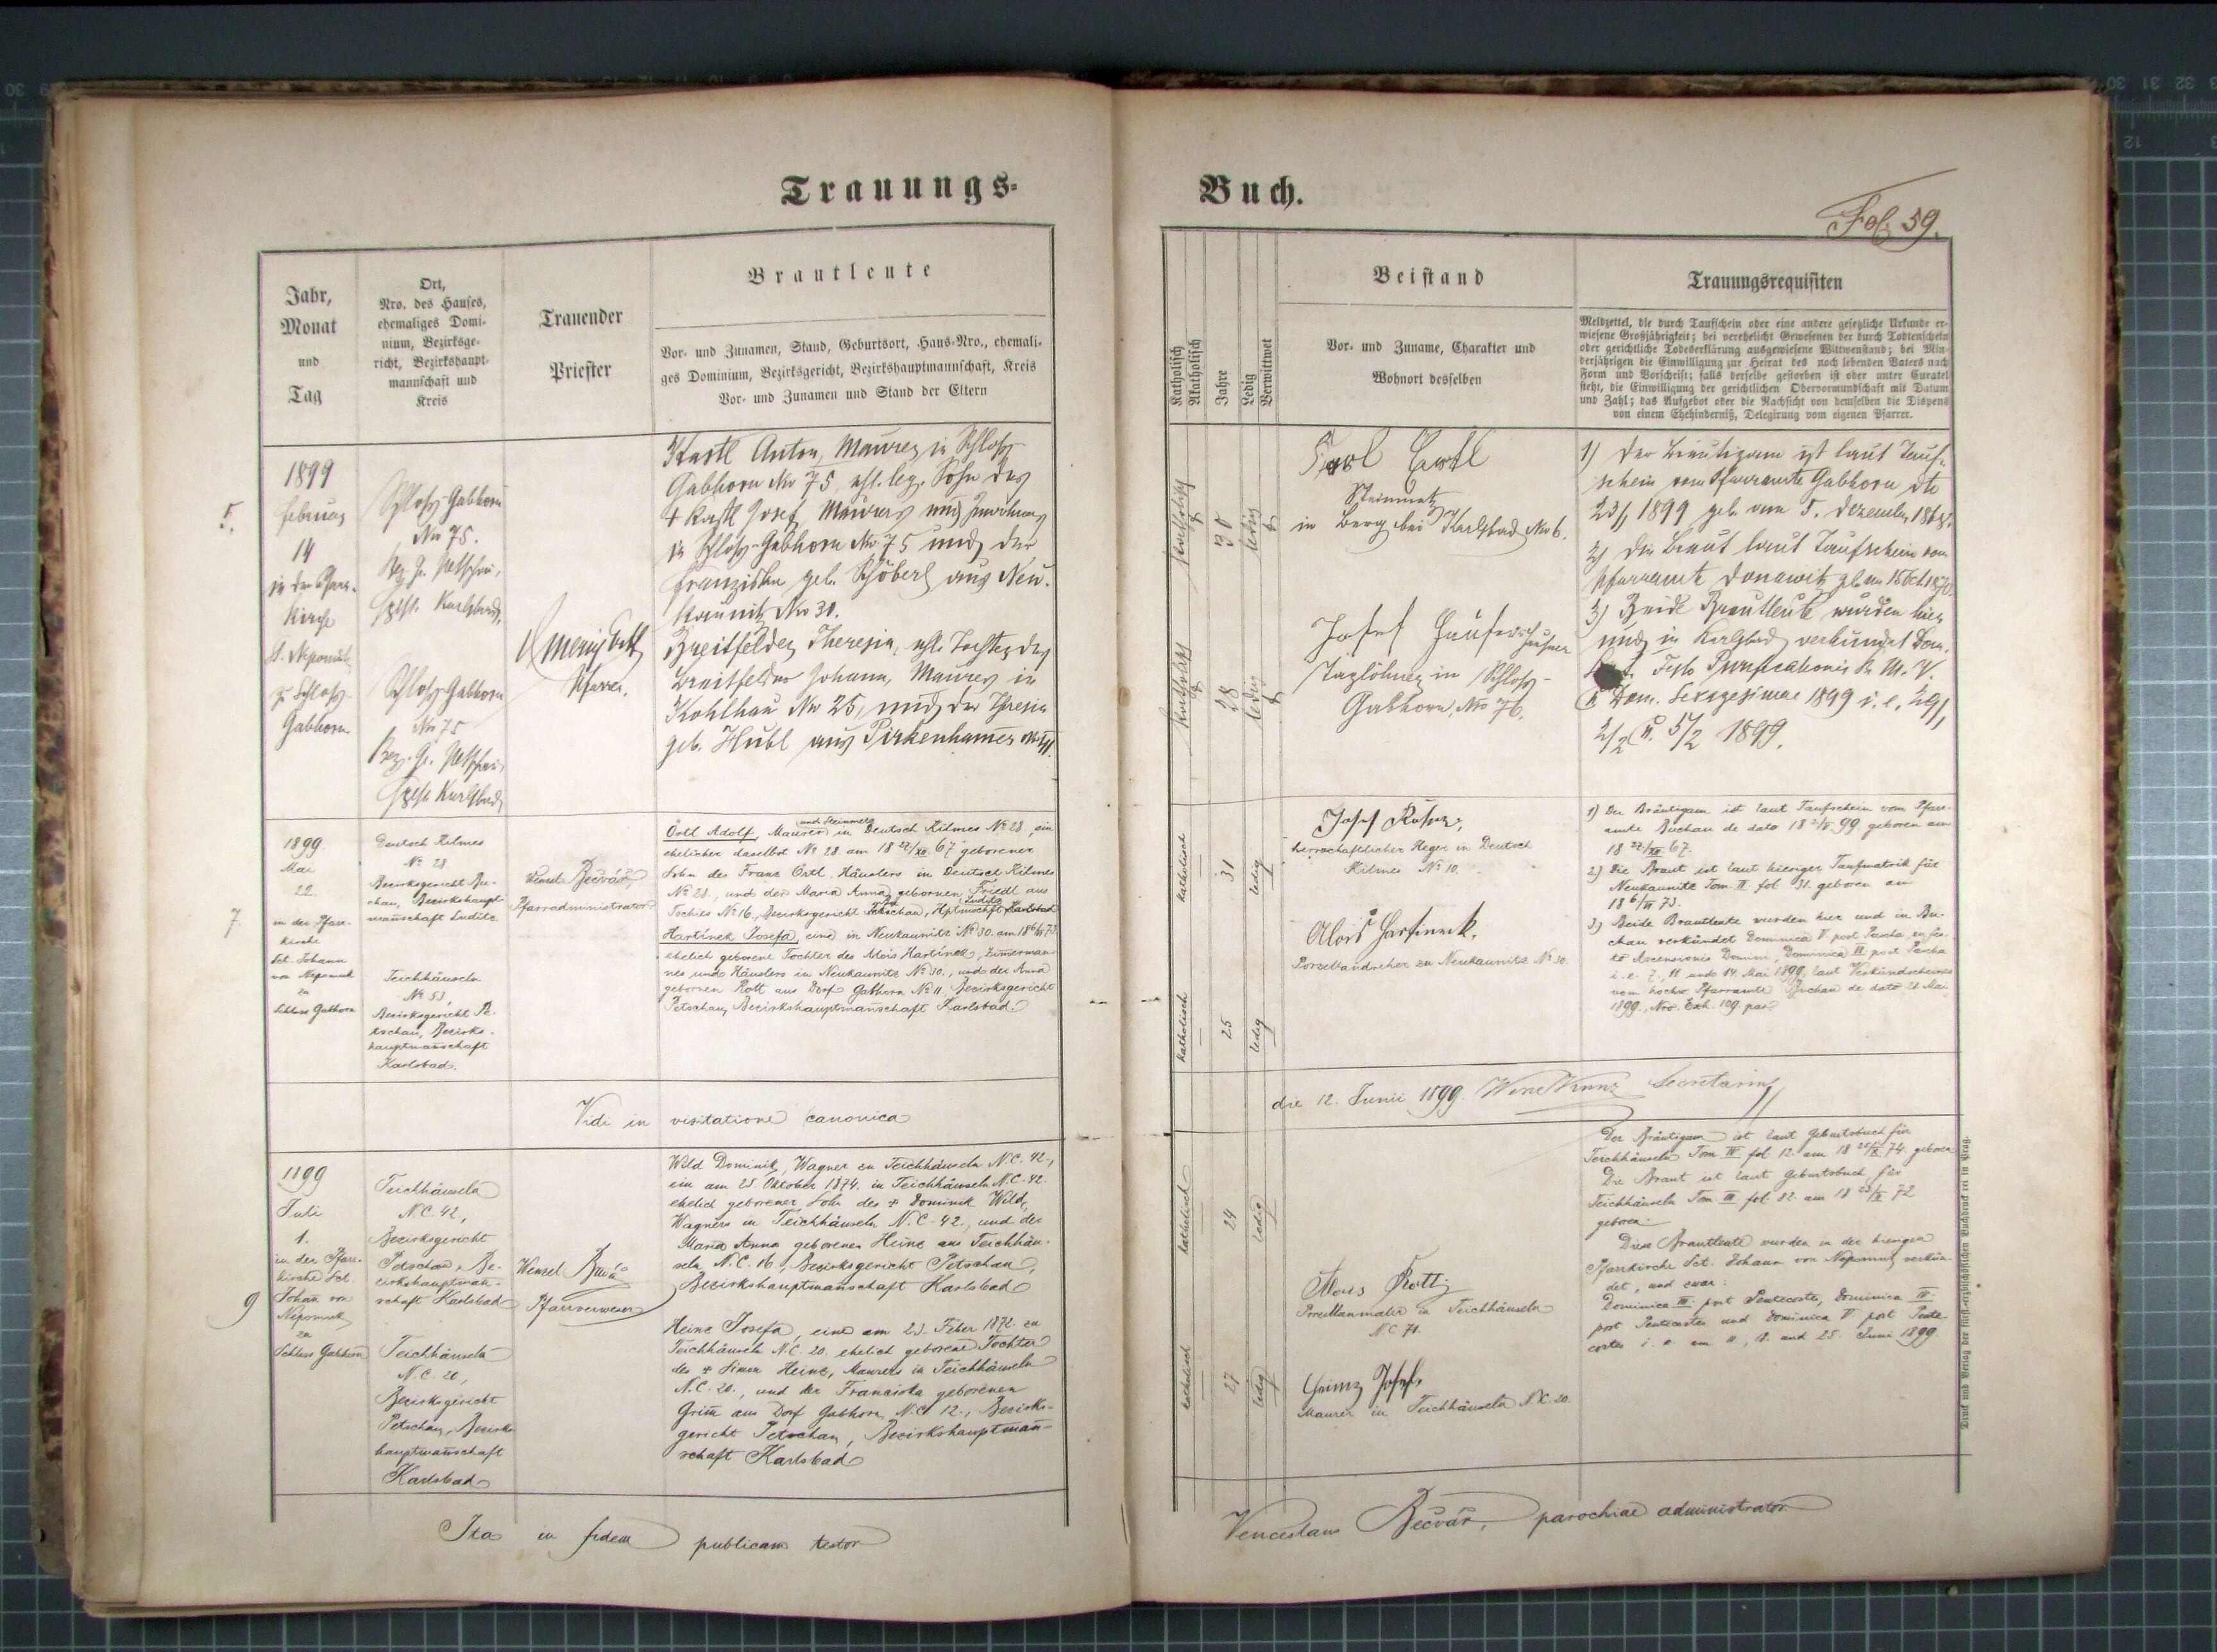 Trauungs-
Jahr,
Monat
und
Tag
Ort,
Nro. des Hauses,
ehemaliges Domi-
nium, Bezirksge-
richt, Bezirkshaupt-
mannschaft und
Kreis
Trauender
Priester
Brautleute
Vor- und Zunamen, Stand, Geburtsort, Haus-Nro., ehemali-
ges Dominium, Bezirksgericht, Bezirkshauptmannschaft, Kreis
Vor- und Zunamen und Stand der Eltern
5.
1899
Februar
14
in der Pfarr-
kirche
St. Nepomuk
zu Schloss-
Gabhorn
Schloss-Gabhorn
No 75.
Bez. G. Petschau,
Karlsbad
Schloss-Gabhorn
No 75
Bez. G. Petschau,
Karlsbad
Pfarrer.
Kastl Anton, Maurer in Schloss-
Gabhorn No 75 ehl. leg. Sohn des
+ Kastl Josef, Maurers und Inwohners
in Schloss-Gabhorn No 75 und der
Franziska geb. Schöberl aus Neu-
kaunitz No 30.
Breitfelder Theresia, ehl. Tochter des
Breitfelder Johann, Maurer in
Kohlhau No 25, und der Theresia
geb. Hubl aus Pirkenhammer
7.
1899.
Mai
22.
in der Pfarr-
kirche
Sct. Johann
von Nepomuk
zu
Schloss Gabhorn
Deutsch Kilmes
No 28
Bezirksgericht Bu-
chau, Bezirkshaupt-
mañschaft Luditz.
Teichhäuseln
No 53,
Bezirksgericht Pe-
tschau, Bezirks-
hauptmañschaft
Karlsbad.
Wenzel Bečvář,
Pfarradministrator
und Steinmetz
Örtl Adolf, Maurer in Deutsch Kilmes No 28, ein
ehelicher daselbst No 28 am 18 22/XII 67 geborener
Sohn des Franz Örtl, Häuslers in Deutsch Kilmes
No 28., und der Maria Anna gebornen Friedl aus
Tochies No 16., Bezirksgericht
Luditz
Hartinek Josefa, eine in Neukaunitz No 30. am 18 6/III 73
ehelich geborene Tochter des Alois Hartinek, Zimerman-
nes und Häuslers in Neukaunitz No 30., und der Anna
gebornen Rott aus Dorf Gabhorn No 11, Bezirksgericht
Petschau, Bezirkshauptmañschaft Karlsbad.
Vidi in visitatione canonica
9
1899
Juli
1.
in der Pfarr-
kirche Sct.
Johañ von
Nepomuk
zu
Schloss Gabhorn
Teichhäuseln
N.C. 42,
Bezirksgericht
Petschau, Be-
zirkshauptmañ-
schaft Karlsbad
Teichhäuseln
N.C. 20,
Bezirksgericht
Petschau, Bezirks-
hauptmañschaft
Karlsbad
Wenzel Bečvář
Pfarrverweser
Wild Dominik, Wagner zu Teichhäuseln N.C. 42.,
ein am 25 Oktober 1874. in Teichhäuseln N.C. 42.
ehelich geborener Sohn des + Dominik Wild,
Wagners in Teichhäuseln N.C. 42., und der
Maria Anna geborener Heinz aus Teichhäu-
seln N.C. 16, Bezirksgericht Petschau,
Bezirkshauptmañschaft Karlsbad
Heinz Josefa, eine am 23. Feber 1872. zu
Teichhäuseln N.C. 20. ehelich geborene Tochter
des + Simon Heinz, Maurers in Teichhäuseln
N.C. 20., und der Franziska geborenen
Grim̄ aus Dorf Gabhorn N.C. 12., Bezirks-
gericht Petschau, Bezirkshauptmañ-
schaft Karlsbad
Ita in fidem publicam testor
Buch.
Fol. 59.
Katholisch
Akatholisch
Jahre
Ledig
Verwittwet
Beistand
Vor- und Zuname, Charakter und
Wohnort desselben
Trauungsrequisiten
Meldzettel, die durch Taufschein oder eine andere gesetzliche Urkunde er-
wiesene Großjährigkeit; bei verehelicht Gewesenen der durch Todtenschein
oder gerichtliche Todeserklärung ausgewiesene Wittwenstand; bei Min-
derjährigen die Einwilligung zur Heirat des noch lebenden Vaters nach
Form und Vorschrift; falls derselbe gestorben ist oder unter Curatel
steht, die Einwilligung der gerichtlichen Obervormundschaft mit Datum
und Zahl; das Aufgebot oder die Nachsicht von demselben die Dispens
von einem Ehehinderniß, Delegirung vom eigenen Pfarrer.
Katholisch
30
ledig
Katholisch
28
ledig
Steinmetz
in Berg bei Karlsbad No 6.
Josef
Taglöhner in Schloss-
Gabhorn, No 76.
1) Der Bräutigam ist laut Tauf-
schein vom Pfarramte Gabhorn dto
23/1 1899 geb. am 5. Dezember
2) Die Braut laut Taufschein vom
Pfarramte Donawitz geb. am
3) Beide Brautleute wurden hier
und in Karlsbad verkündet Dom.
Festo Purificationis B. M. V.
Dom. Sexagesimae 1899 i. e. 29/1,
2/2 u. 5/2 1899.
katholisch
31
ledig
katholisch
25
ledig
Josef
herrschaftlicher Heger in Deutsch
Kilmes No 10.
Alois Hartineck,
Porzellandreher zu Neukaunitz No 30.
1) Der Bräutigam ist laut Taufschein vom Pfarr-
amte Buchau de dato 18 99. geboren am
18 22/XII 67.
2) Die Braut ist laut hiesiger Taufmatrik für
Neukaunitz Tom. II. fol 31. geboren am
18 6/III 73.
3) Beide Brautleute wurden hier und in Bu-
chau verkündet Dominica V post Pascha, in fes-
to Ascensionis Domini, Dominica VI post Pascha
i. e. 7., 11 und 14. Mai 1899, laut Verkündscheines
vom hochw. Pfarramte Buchau de dato 21 Mai
1899., Nro. Exh. 109. par.
die 12. Junii 1899. Secretarius
katholisch
24
ledig
katholisch
27
ledig
Alois Rott,
Porzellanmaler in Teichhäuseln
N.C. 71.
Heinz Josef,
Maurer in Teichhäuseln N.C. 20.
Der Bräutigam ist laut Geburtsbuch für
Teichhäuseln Tom IV fol 12. am 18 25/X 74. geboren
Die Braut ist laut Geburtsbuch für
Teichhäuseln Tom III fol. 82. am 18 23/II 72
geboren.
Diese Brautleute wurden in der hiesigen
Pfarrkirche Sct. Johann von Nepomuk verkün-
det, und zwar:
Dominica III. post Pentecostes, Dominica IV.
post Pentecostes und Dominica V post Pente-
costes i. e. am 11, 18. und 25. Juni 1899.
Venceslaus Bečvář, parochiae administrator
Druck und Verlag der fürst-erzbischöflichen Buchdruckerei in Prag.